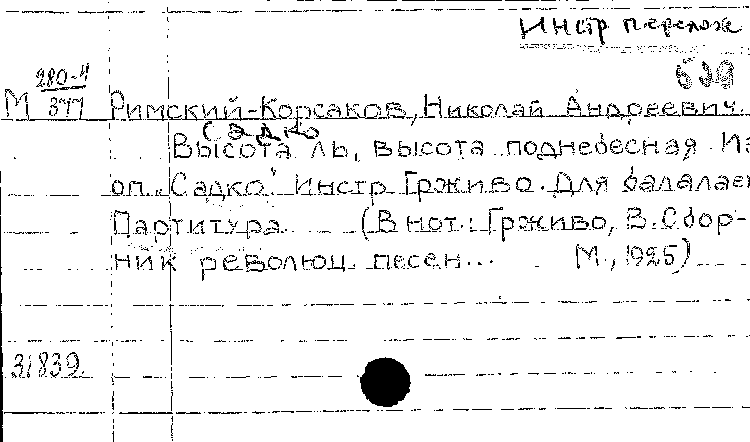 Инстр перелож
529
280-4
М 377 Римский-Корсаков, Николай Андреевич.
Садко
Высота ль, высота поднебесная. Из
оп. "Садко". Инстр Грживо. Для балалаеч
Партитура (В нот.: Грживо, В. Сбор-
ник революц. песен... М., 1925)
31839.